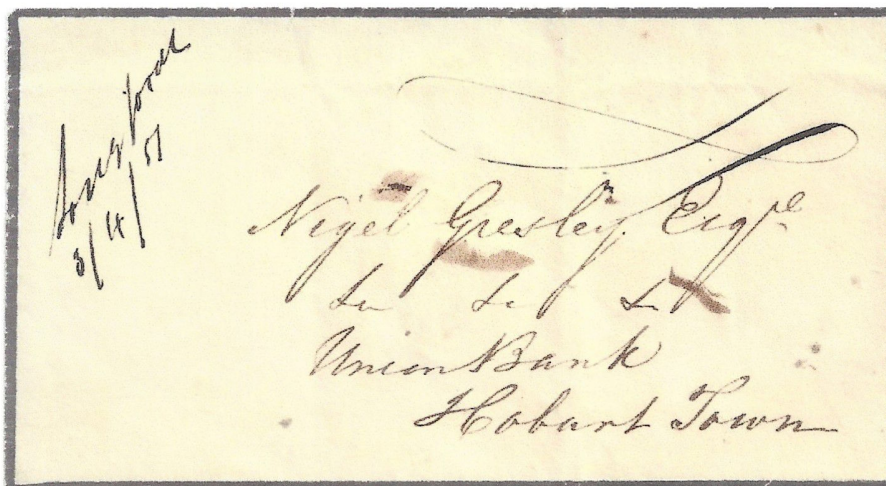 Longford
3/4/51
Nigel Gresley Esqre
&c &c &c
Union Bank
Hobart Town